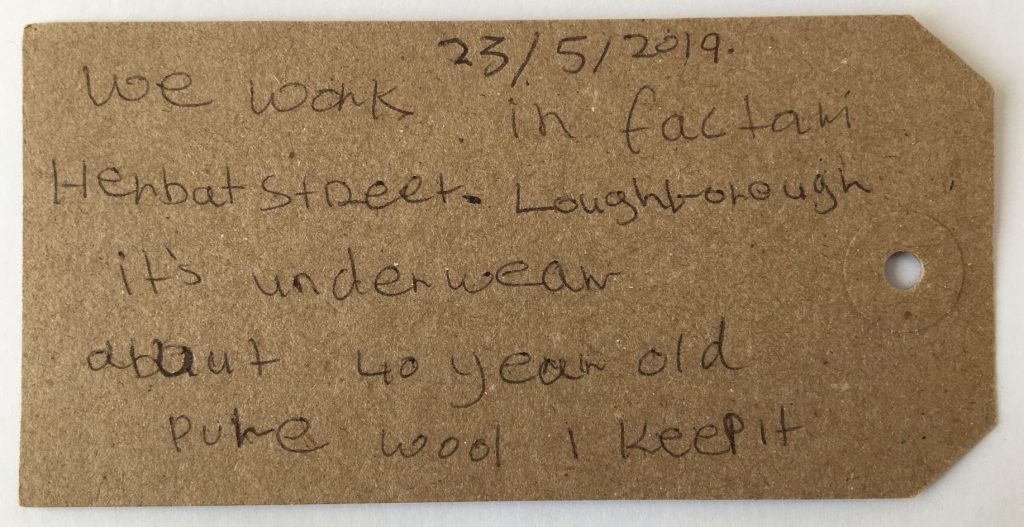 23/5/2019.
we work in factari
Herbat Street. Loughborough
it's underwear
about 40 year old
pure wool I keep it